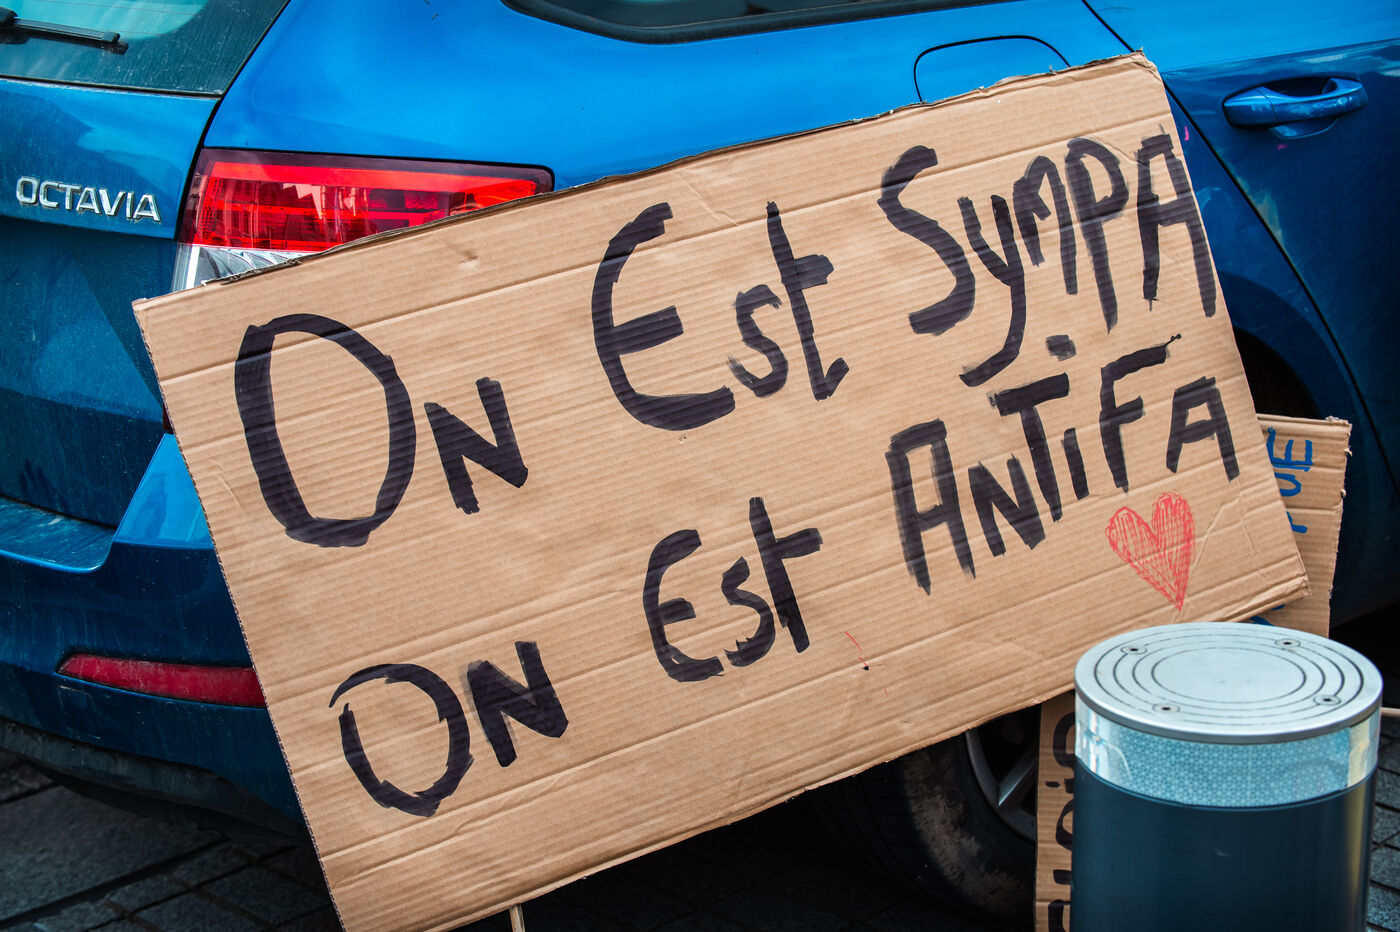 OCTAVIA
On Est SyMPA
On Est AnTiFA